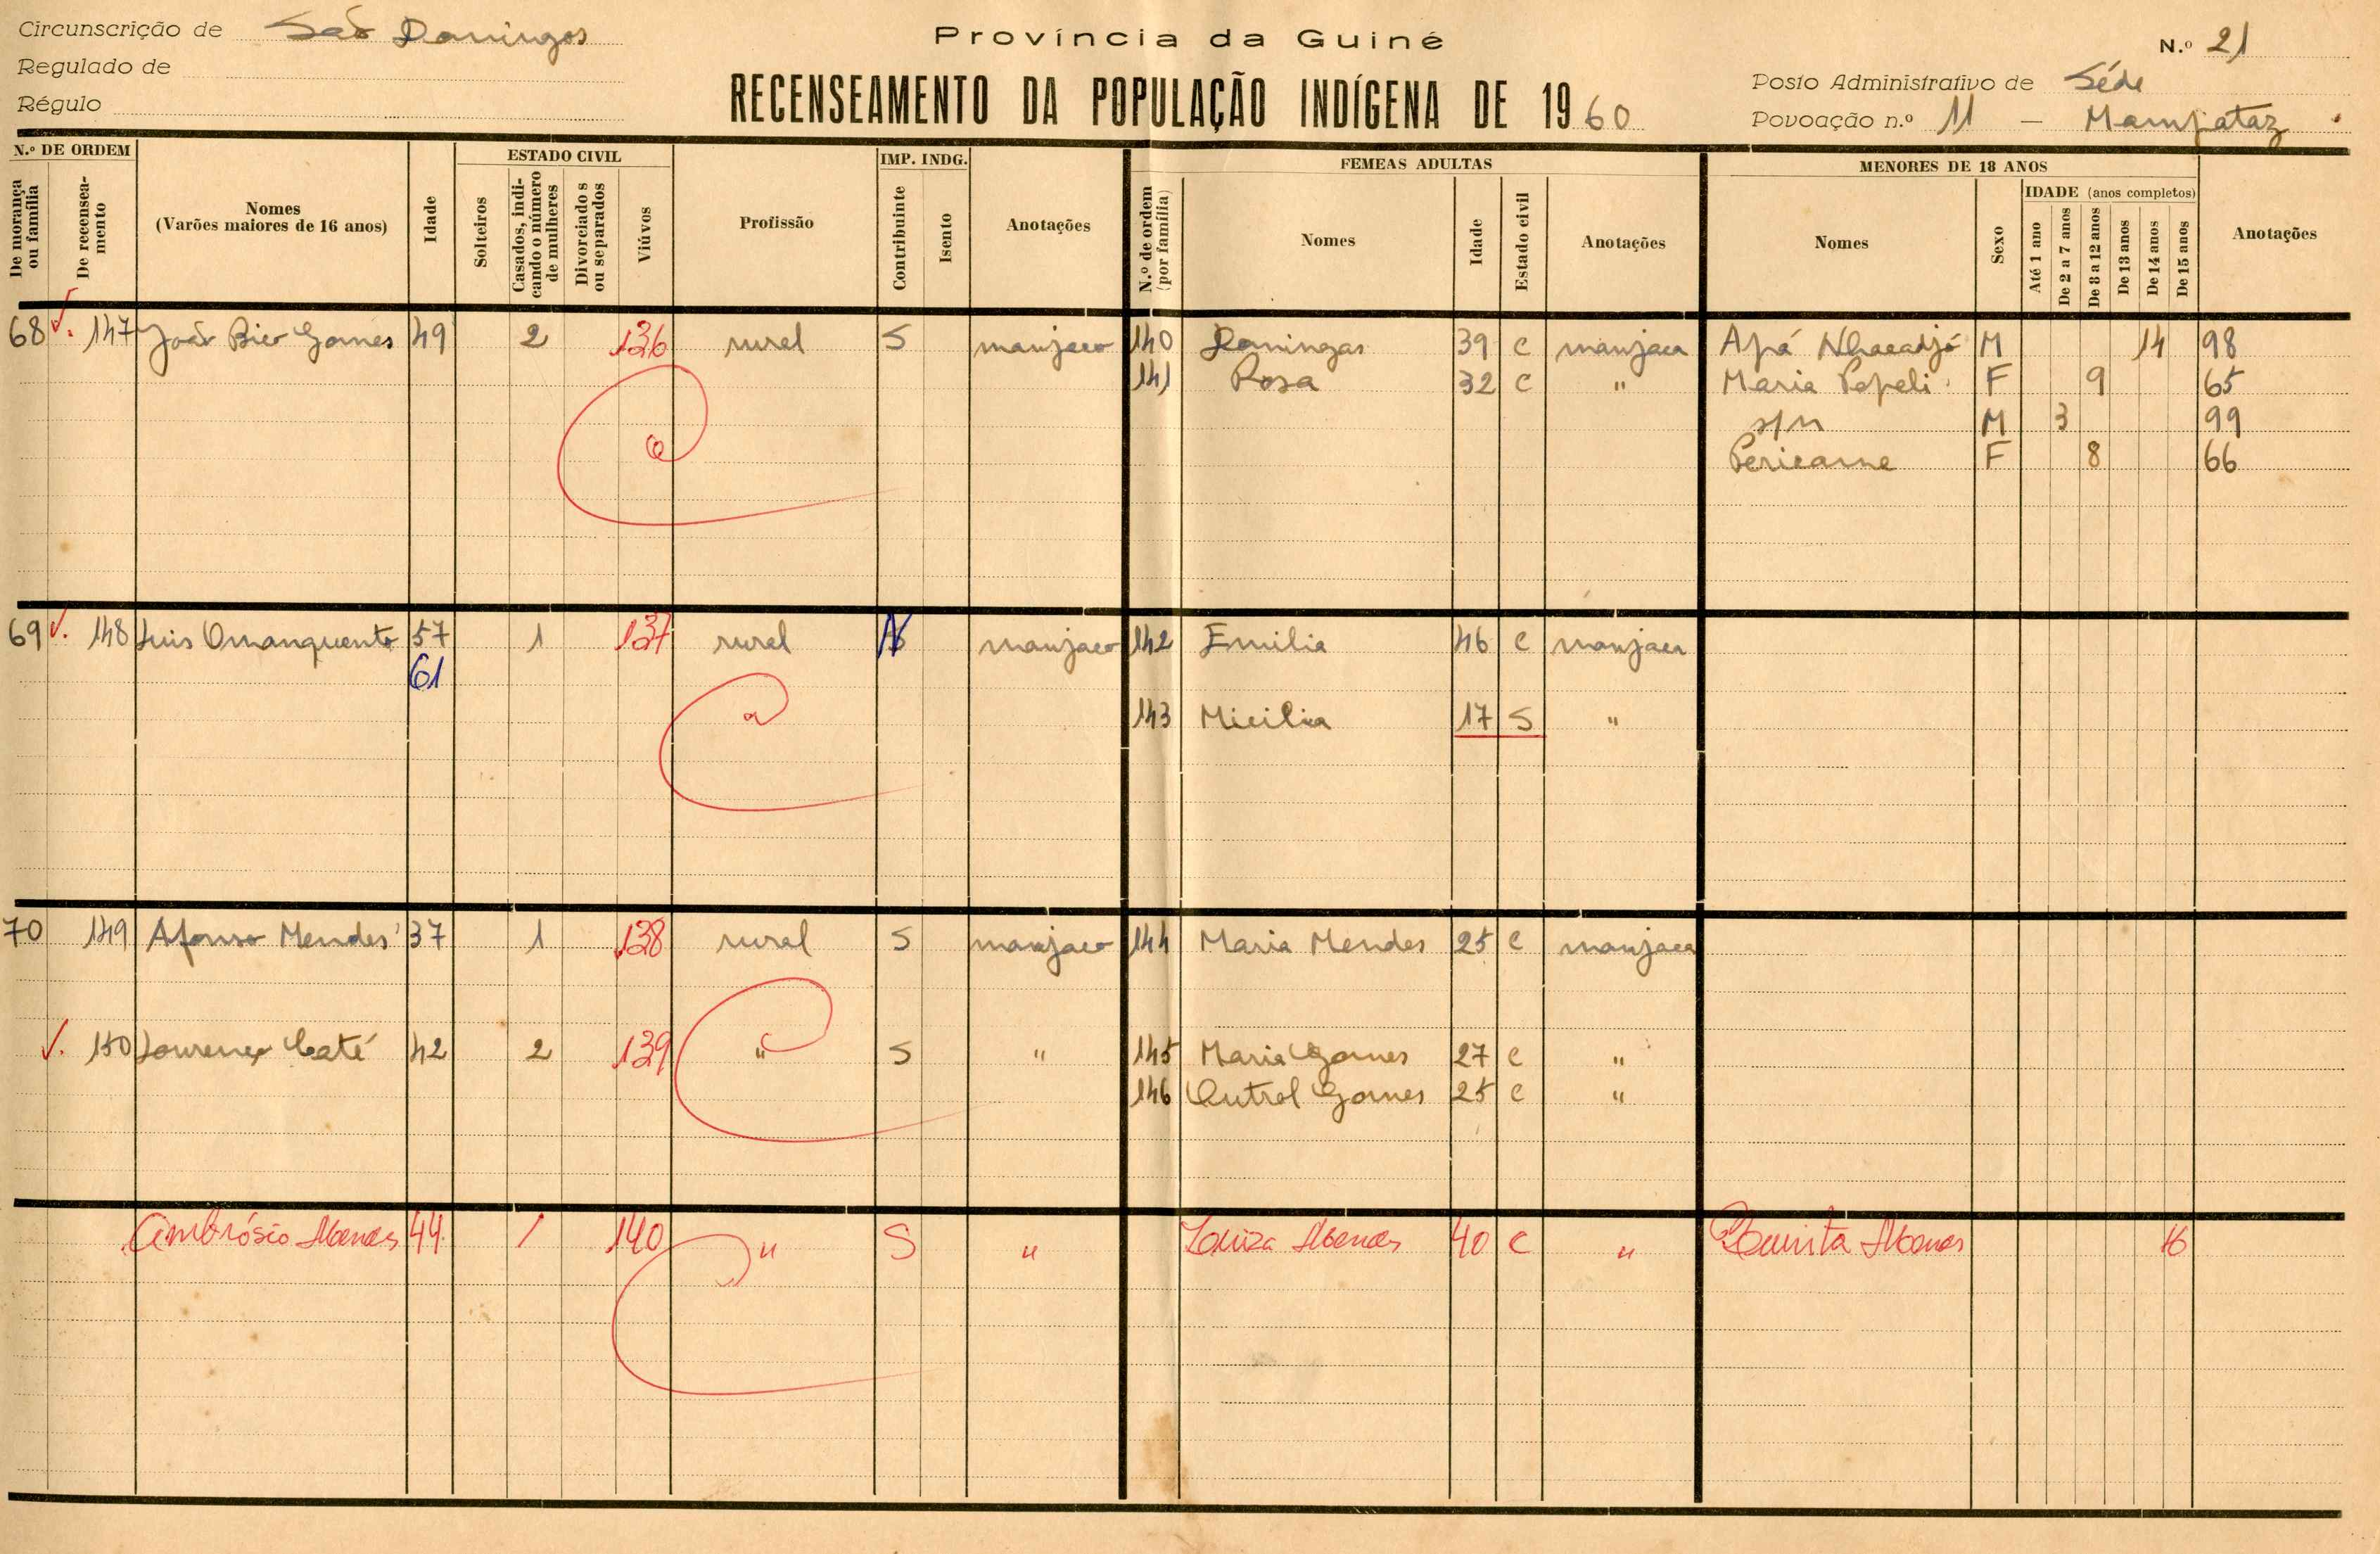 Circunscrição de São Domingos
Regulado de
Régulo
Província da Guiné
RECENSEAMENTO DA POPULAÇÃO INDÍGENA DE 1960
N.º 21
Posto Administrativo de Séde
Povoação n.º 11 — Mampataz
N.º DE ORDEM
De morança ou família
De recensea-mento
Nomes
(Varões maiores de 16 anos)
Idade
ESTADO CIVIL
Solteiros
Casados, indi-cando o número de mulheres
Divorciados ou separados
Viúvos
Profissão
IMP. INDG.
Contribuinte
Isento
Anotações
FEMEAS ADULTAS
N.º de ordem (por família)
Nomes
Idade
Estado civil
Anotações
MENORES DE 18 ANOS
Nomes
Sexo
IDADE (anos completos)
Até 1 ano
De 2 a 7 anos
De 8 a 12 anos
De 13 anos
De 14 anos
De 15 anos
Anotações
68 147 João Bico Gomes 49 2 136 rural S manjaco 140 Domingas 39 c manjaca Apá Nhacadjó M 14 98
141 Rosa 32 c " Maria Pepeli F 9 65
s/n M 3 99
Pericarne F 8 66
69 148 Luis Omanquento 57 1 137 rural manjaco 142 Emilia 46 c manjaca
61
143 Micilia 17 S "
70 149 Afonso Mendes 37 1 138 rural S manjaco 144 Maria Mendes 25 c manjaca
150 Lourenço Caté 42 2 139 " S " 145 Maria Gomes 27 c "
146 Gomes 25 c "
Ambrósio Mendes 44 1 140 " S " Luiza Mendes 40 c " Mendes 16